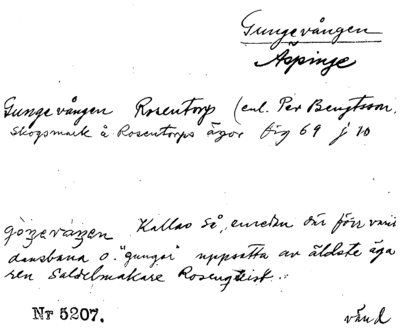 Gungevången
Äspinge
Gungevången Rosentorp (enl. Per Bengtsson.
Skogsmark å Rosentorps ägor fig 69 j 10
Kallas så, emedan där förr varit
dansbana o. "gungor" uppsatta av äldste äga
ren Sadelmakare Rosenqvist.
Nr 5207.
vänd